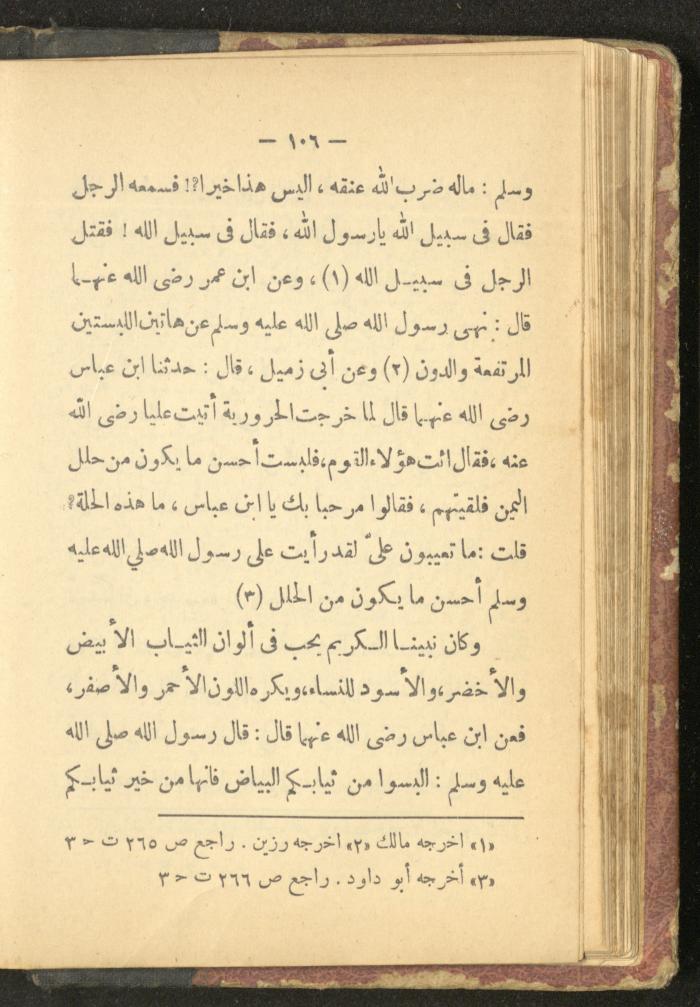 — ١٠٦ —
وسلم : ماله ضرب الله عنقه ، اليس هذا خيرا؟! فسمعه الرجل
فقال فى سبيل الله يارسول الله ، فقال فى سبيل الله ! فقتل
الرجل فى سبيـل الله (١) ، وعن ابن عمر رضى الله عنهـما
قال : نهى رسول الله صلى الله عليه وسلم عن هاتين اللبستين
المرتفعة والدون (٢) وعن أبى زميل ، قال : حدثنا ابن عباس
رضى الله عنهـما قال لما خرجت الحرورية أتيت عليا رضى الله
عنه ، فقال ائت هؤلاء القوم، فلبست أحسن ما يكون من حلل
اليمن فلقيتهم ، فقالوا مرحبا بك يا ابن عباس ، ما هذه الحلة؟
قلت : ما تعيبون علىّ لقد رأيت على رسول الله صلي الله عليه
وسلم أحسن ما يكون من الحلل (٣)
وكان نبينـا الـكريم يحب فى ألوان الثيـاب الأبيض
والأخضر، والأسود للنساء، ويكره اللون الأحمر والأصفر،
فعن ابن عباس رضى الله عنهما قال : قال رسول الله صلى الله
عليه وسلم : البسوا من ثيابـكم البياض فانها من خير ثيابـكم
«١» اخرجه مالك «٢» اخرجه رزين . راجع ص ٢٦٥ ت ح ٣
«٣» أخرجه أبو داود . راجع ص ٢٦٦ ت ح ٣